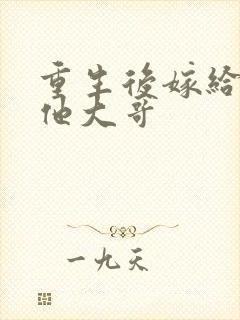 重生後嫁給
他大哥
一九天